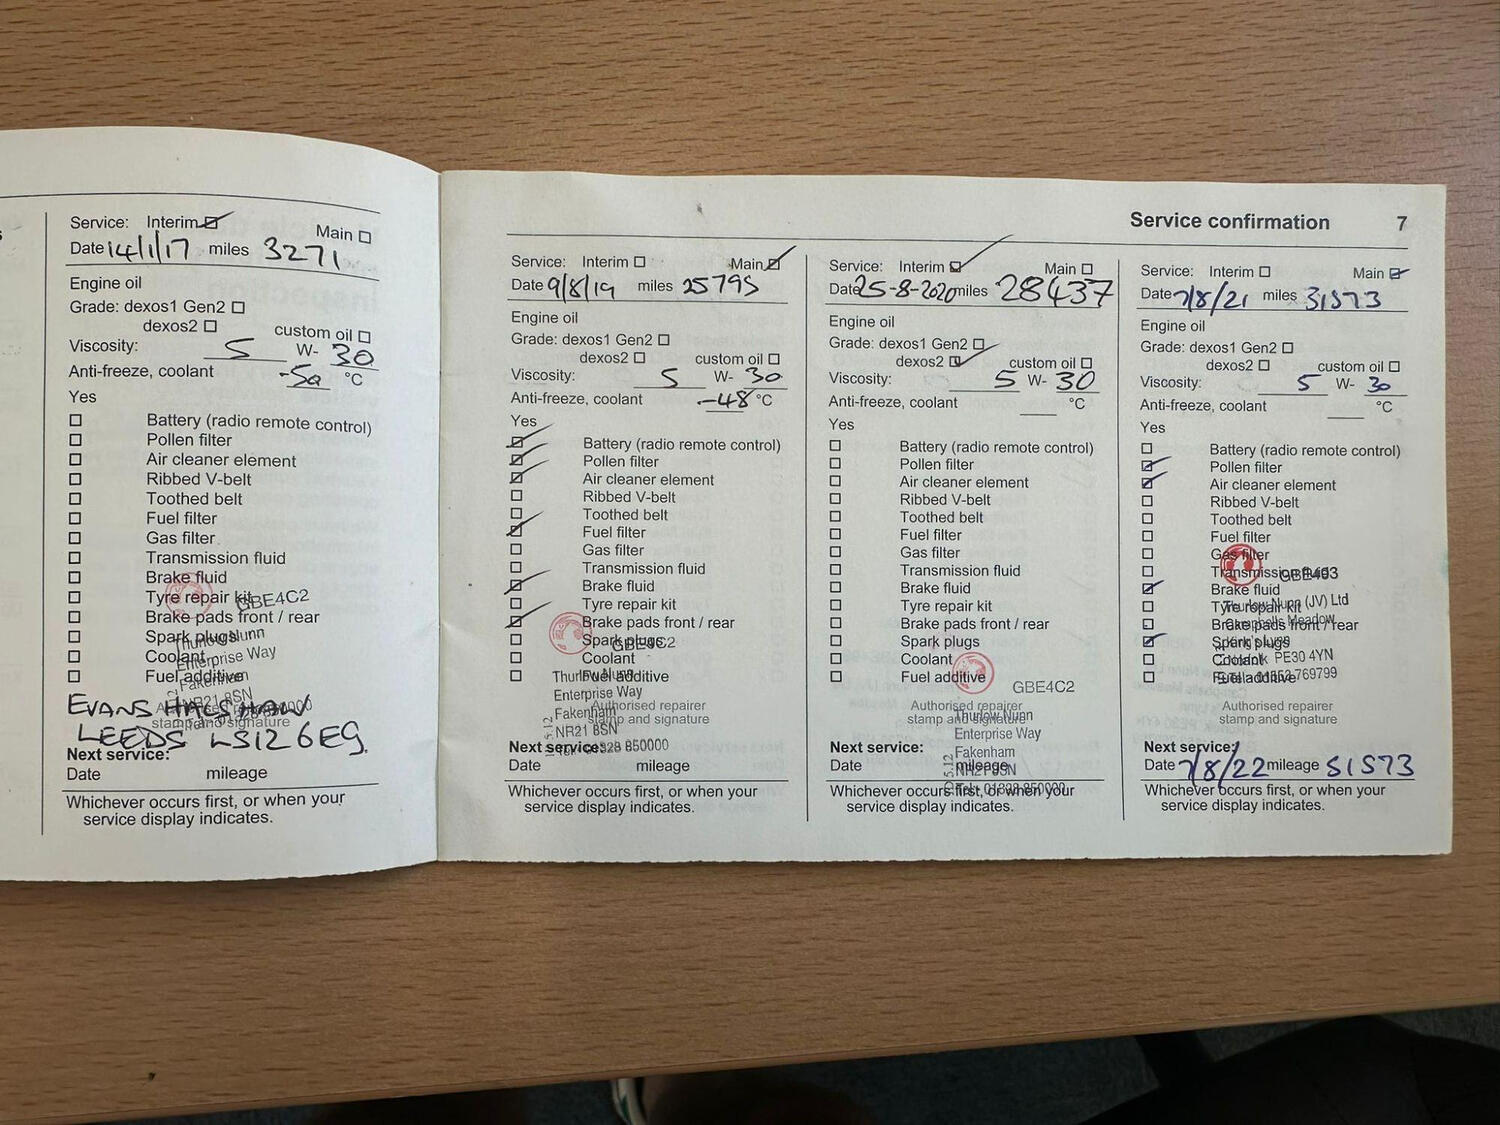 Service confirmation 7
Service: Interim Main
Date 14/1/17 miles 3271
Engine oil
Grade: dexos1 Gen2
dexos2 custom oil
Viscosity: 5 W- 30
Anti-freeze, coolant -50 °C
Yes
Battery (radio remote control)
Pollen filter
Air cleaner element
Ribbed V-belt
Toothed belt
Fuel filter
Gas filter
Transmission fluid
Brake fluid
Tyre repair kit
GBE4C2
Brake pads front / rear
Spark plugs
Thurlow Nunn
Coolant
Enterprise Way
Fuel additive
Fakenham
NR21 8SN
EVANS HALSHAW
stamp and signature
LEEDS LS12 6EG.
Next service:
Date mileage
Whichever occurs first, or when your
service display indicates.
Service: Interim Main
Date 9/8/19 miles 25795
Engine oil
Grade: dexos1 Gen2
dexos2 custom oil
Viscosity: 5 W- 30
Anti-freeze, coolant -48 °C
Yes
Battery (radio remote control)
Pollen filter
Air cleaner element
Ribbed V-belt
Toothed belt
Fuel filter
Gas filter
Transmission fluid
Brake fluid
Tyre repair kit
Brake pads front / rear
Spark plugs
GBE4C2
Coolant
Fuel additive
Thurlow Nunn
Enterprise Way
Authorised repairer
Fakenham
stamp and signature
NR21 8SN
Next service:
Tel: 01328 850000
Date mileage
Whichever occurs first, or when your
service display indicates.
Service: Interim Main
Date 25-8-2020 miles 28437
Engine oil
Grade: dexos1 Gen2
dexos2 custom oil
Viscosity: 5 W- 30
Anti-freeze, coolant °C
Yes
Battery (radio remote control)
Pollen filter
Air cleaner element
Ribbed V-belt
Toothed belt
Fuel filter
Gas filter
Transmission fluid
Brake fluid
Tyre repair kit
Brake pads front / rear
Spark plugs
Coolant
Fuel additive
GBE4C2
Authorised repairer
stamp and signature
Thurlow Nunn
Enterprise Way
Next service:
Fakenham
Date mileage
NR21 8SN
Tel: 01328 850000
Whichever occurs first, or when your
service display indicates.
Service: Interim Main
Date 7/8/21 miles 31573
Engine oil
Grade: dexos1 Gen2
dexos2 custom oil
Viscosity: 5 W- 30
Anti-freeze, coolant °C
Yes
Battery (radio remote control)
Pollen filter
Air cleaner element
Ribbed V-belt
Toothed belt
Fuel filter
Gas filter
Transmission fluid
GBE493
Brake fluid
Tyre repair kit
Thurlow Nunn (JV) Ltd
Brake pads front / rear
Campbells Meadow
Spark plugs
King's Lynn
Coolant
Norfolk PE30 4YN
Fuel additive
Tel: 01552 769799
Authorised repairer
stamp and signature
Next service:
Date 7/8/22 mileage 51573
Whichever occurs first, or when your
service display indicates.